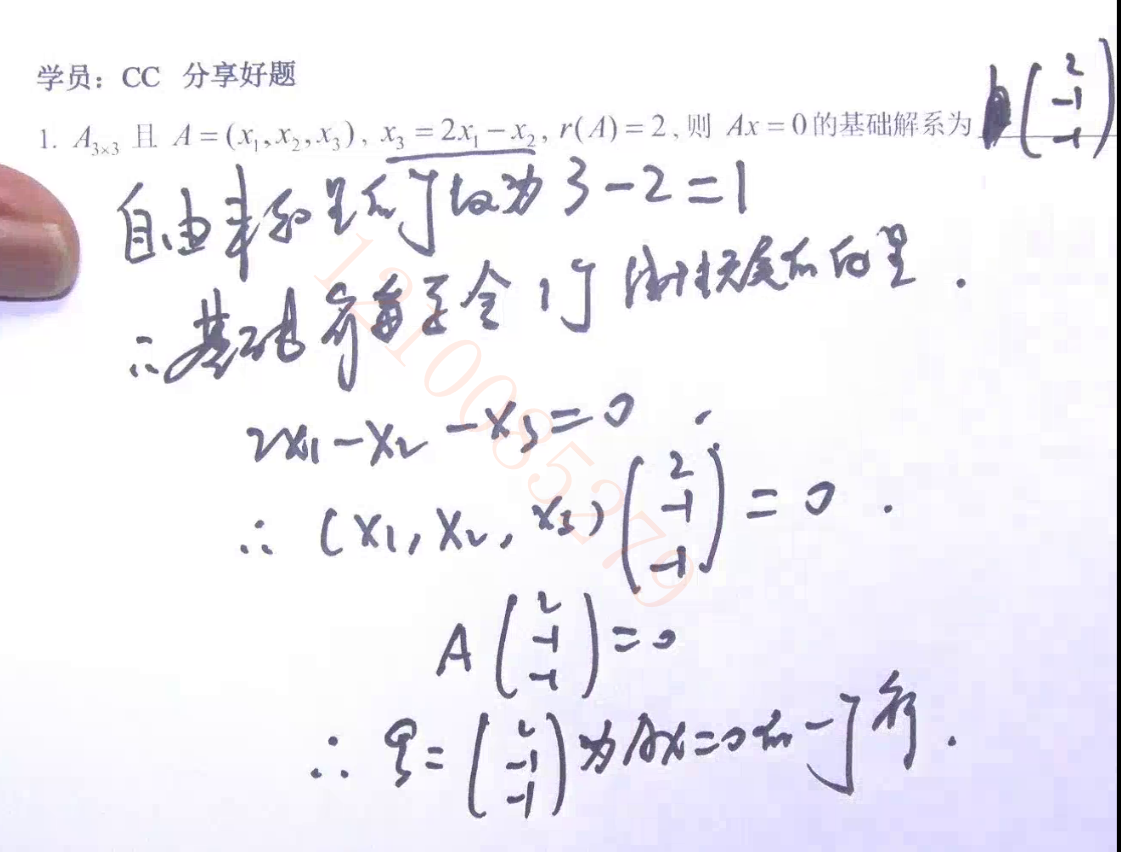 学员：CC 分享好题
1. A₃ₓ₃ 且 A = (x₁, x₂, x₃), x₃ = 2x₁ − x₂, r(A) = 2, 则 Ax = 0 的基础解系为 (2 -1 -1)
自由未知量的个数为 3 − 2 = 1
∴ 基础解系含 1个 线性无关的向量.
2x₁ − x₂ − x₃ = 0
∴ (x₁, x₂, x₃) (2 -1 -1) = 0.
A (2 -1 -1) = 0
∴ ξ = (2 -1 -1) 为 Ax = 0 的一个解.
1210085279